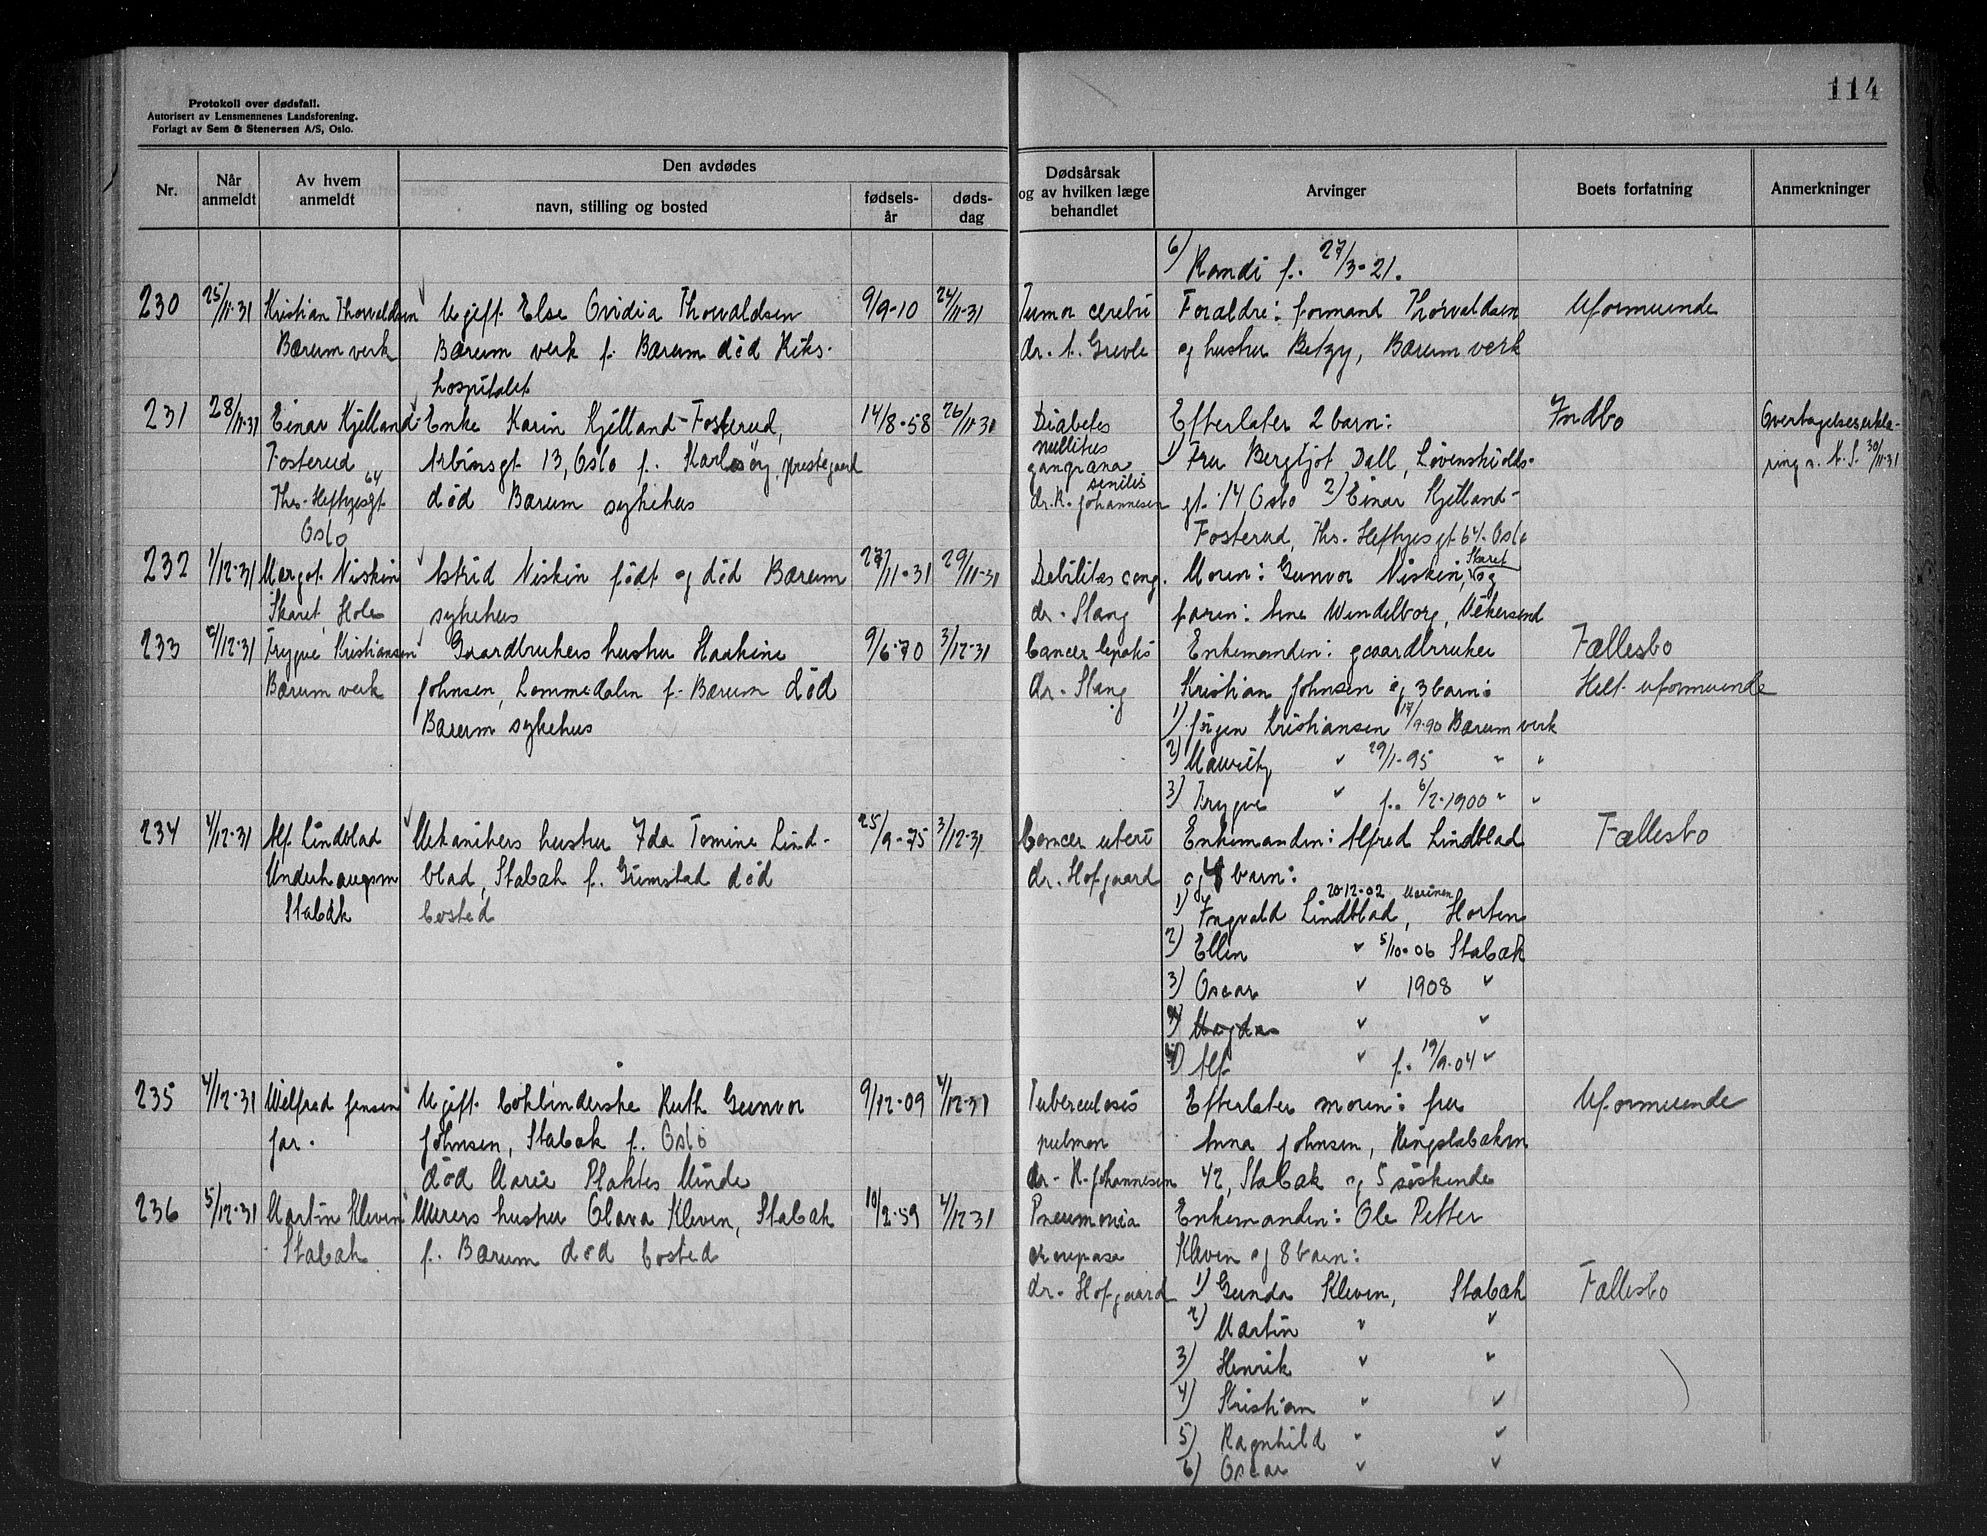 114
Protokoll over dødsfall.
Autorisert av Lensmennenes Landsforening.
Forlagt av Sem & Stenersen A/S, Oslo.
Nr. Når anmeldt Av hvem anmeldt Den avdødes navn, stilling og bosted fødsels-år døds-dag Dødsårsak og av hvilken læge behandlet Arvinger Boets forfatning Anmerkninger
6) Randi f. 27/3-21.
230 25/11-31 Kristian Thorvaldsen Ugift Else Ovidia Thorvaldsen 9/9-10 24/11-31 Tumor cerebri Foraldre: formand Thorvaldsen Uformuende
Bærum verk Bærum verk f. Bærum død Riks- dr. A. Grevle og hustru Betzy, Bærum verk
hospitalet
231 28/11-31 Einar Kjelland- Enke Karin Kjelland-Fosterud, 14/8-58 26/11-31 Diabetes Efterlater 2 barn: Indbo Overtagelseserklæ-
Fosterud Arbinsgt 13, Oslo f. Karlsöy prestegaard mellitus gangræna 1) Fru Bergljot Dall, Løvenskiolds- ring s. A. S. 30/11-31
Ths. Heftyesgt 64 død Bærum sykehus senilis dr. R. Johannesen gt. 14 Oslo 2) Einar Kjelland-
Oslo Fosterud, Ths. Heftyesgt 64. Oslo
232 1/12-31 Margot Niskin Astrid Niskin født og død Bærum 27/11-31 29/11-31 Debilitas cong. Moren: Gunvor Niskin, Skaret og
Skaret, Hole sykehus dr. Stang faren: Arne Wendelborg, Vikersund
233 4/12-31 Trygve Kristiansen Gaardbrukers hustru Haakine 9/6-70 3/12-31 Cancer hepatis Enkemanden: gaardbruker Fællesbo
Bærum verk Johnsen, Lommedalen f. Bærum død dr. Stang Kristian Johnsen og 3 barn: Helt uformuende
Bærum sykehus 1) Jørgen Kristiansen 17/9-90 Bærum verk
2) Mauritz " 29/1-95 " "
3) Trygve " f. 6/2-1900 " "
234 4/12-31 Alf Lindblad Mekanikers hustru Ida Tomine Lind- 25/9-75 3/12-31 Cancer uteri Enkemanden: Alfred Lindblad Fællesbo
Underhaugsvn blad, Stabæk f. Grimstad død dr. Hofgaard og 4 barn:
Stabæk bosted 1) Ingvald Lindblad, 20-12-02 Marinen Horten
2) Ellen " 5/10-06 Stabæk
3) Oscar " 1908 "
4) Magda " "
4) Alf " f. 19/9-04 "
235 4/12-31 Wilfred Jensen Ugift bokbinderske Ruth Gunvor 9/12-09 4/12-31 Tuberculosis Efterlater moren: fru Uformuende
far. Johnsen, Stabæk f. Oslo pulmon Anna Johnsen, Ringstabækvn
død Marie Plahtes Minde dr. R. Johannesen 42, Stabæk og 5 søskende
236 5/12-31 Martin Kleven Murers hustru Clara Kleven, Stabæk 10/2-59 4/12 31 Pneumonia Enkemanden: Ole Petter
Stabæk f. Bærum død bosted crouposa Kleven og 8 barn:
dr. Hofgaard 1) Gunda Kleven, Stabæk Fællesbo
2) Martin " "
3) Henrik " "
4) Kristian " "
5) Ragnhild " "
6) Oscar " "